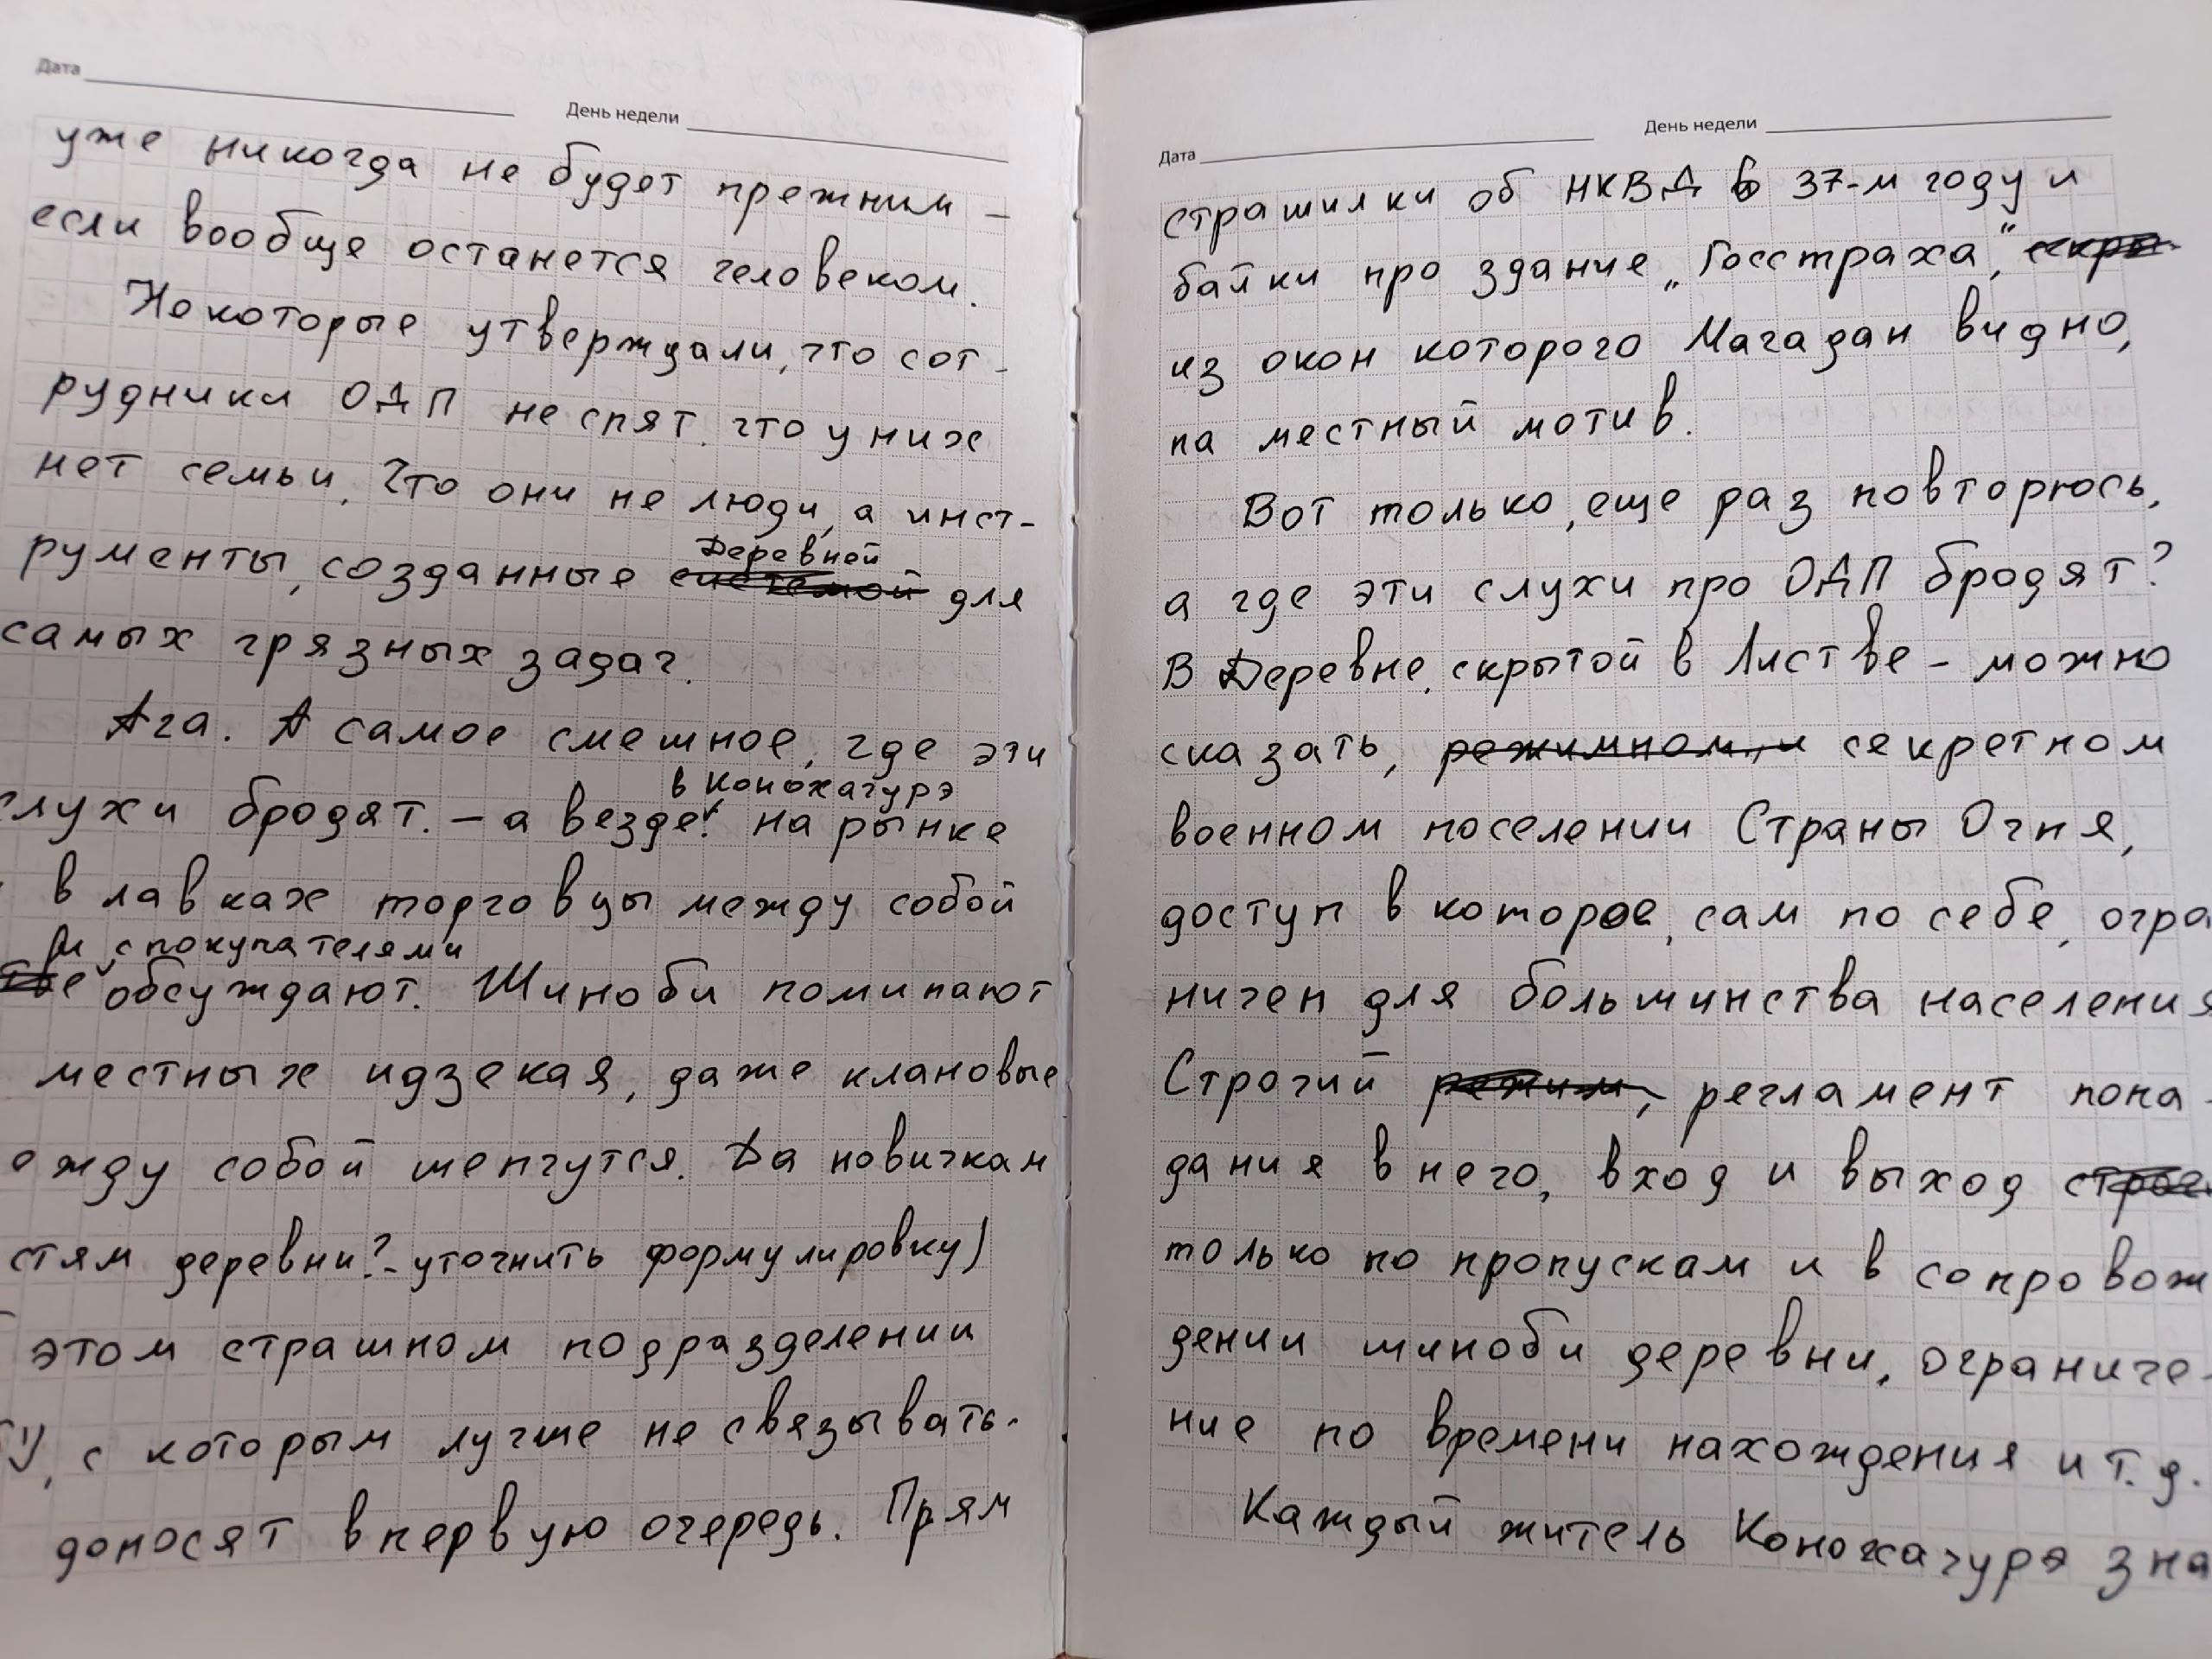 Дата
День недели
уже никогда не будет прежним –
если вообще останется человеком.
Некоторые утверждали, что сот-
рудники ОДП не спят. что у них
нет семьи. Что они не люди, а инст-
Деревней
рументы, созданные системой для
самых грязных задач.
Ага. А самое смешное, где эти
в Конохагурэ
слухи бродят. – а везде! на рынке
в лавках торговцы между собой
и с покупателями
обсуждают. Шиноби поминают
местных идзекая, даже клановые
ежду собой шепчутся. Да новичкам
стям деревни? - уточнить формулировку)
этом страшном подразделении
, с которым лучше не связывать-
доносят в первую очередь. Прям
Дата
День недели
страшилки об НКВД в 37-м году и
байки про здание „Госстраха",
из окон которого Магадан видно,
на местный мотив.
Вот только, еще раз повторюсь,
а где эти слухи про ОДП бродят?
В Деревне, скрытой в Листве – можно
сказать, режимном, и секретном
военном поселении Страны Огня,
доступ в которое, сам по себе, огра
ничен для большинства населения
Строгий режим, регламент попа-
дания в него, вход и выход строг
только по пропускам и в сопровож
дении шиноби деревни, ограниче-
ние по времени нахождения и т.д.
Каждый житель Конохагурэ зна